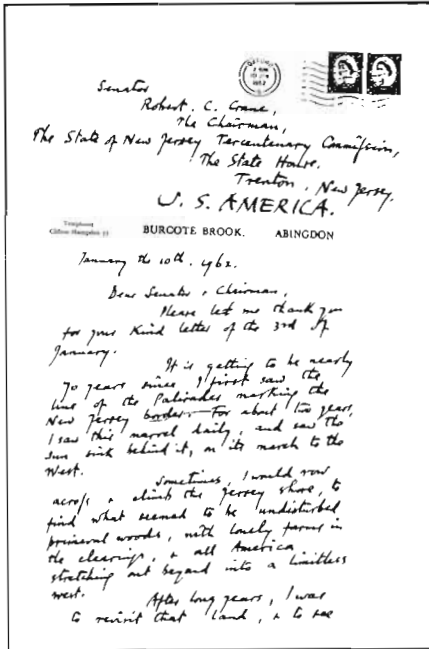 OXFORD
1962
Senator
Robert. C. Crane,
The Chairman,
The State of New Jersey Tercentenary Commission,
The State House.
Trenton, New Jersey.
U. S. AMERICA.
Telephone
Clifton Hampden
BURCOTE BROOK. ABINGDON
January the 10th. 1962.
Dear Senator & Chairman,
Please let me thank you
for your kind letter of the 3rd of
January.
It is getting to be nearly
70 years since I first saw the
line of the Palisades marking the
New Jersey border. For about two years,
I saw this marvel daily, and saw the
sun sink behind it, on its march to the
West.
Sometimes, I would row
across & climb the Jersey shore, to
find what seemed to be undisturbed
primeval woods, with lonely farms in
the clearings, & all America
stretching out beyond into a limitless
west.
After long years, I was
to revisit that land, & to see